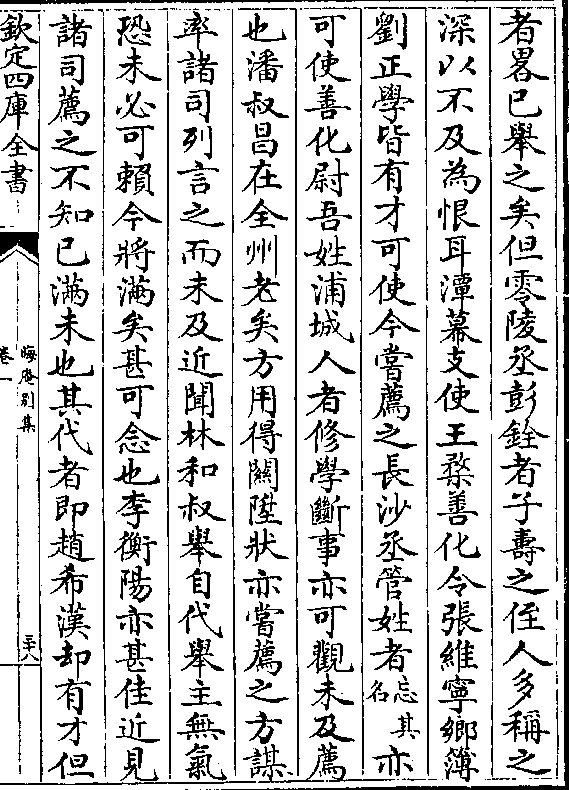 者畧已舉之矣但零陵丞彭銓者子壽之侄人多稱之
深以不及為恨耳潭幕支使王棻善化令張維寧鄉簿
劉正學皆有才可使今嘗薦之長沙丞管姓者忘其名亦
可使善化尉吾姓浦城人者修學斷事亦可觀未及薦
也潘叔昌在全州老矣方用得關陞狀亦嘗薦之方謀
率諸司列言之而未及近聞林和叔舉自代舉主無氣
恐未必可賴今將滿矣甚可念也李衡陽亦甚佳近見
諸司薦之不知已滿未也其代者即趙希漢却有才但
欽定四庫全書
晦庵別集
卷一
三十八